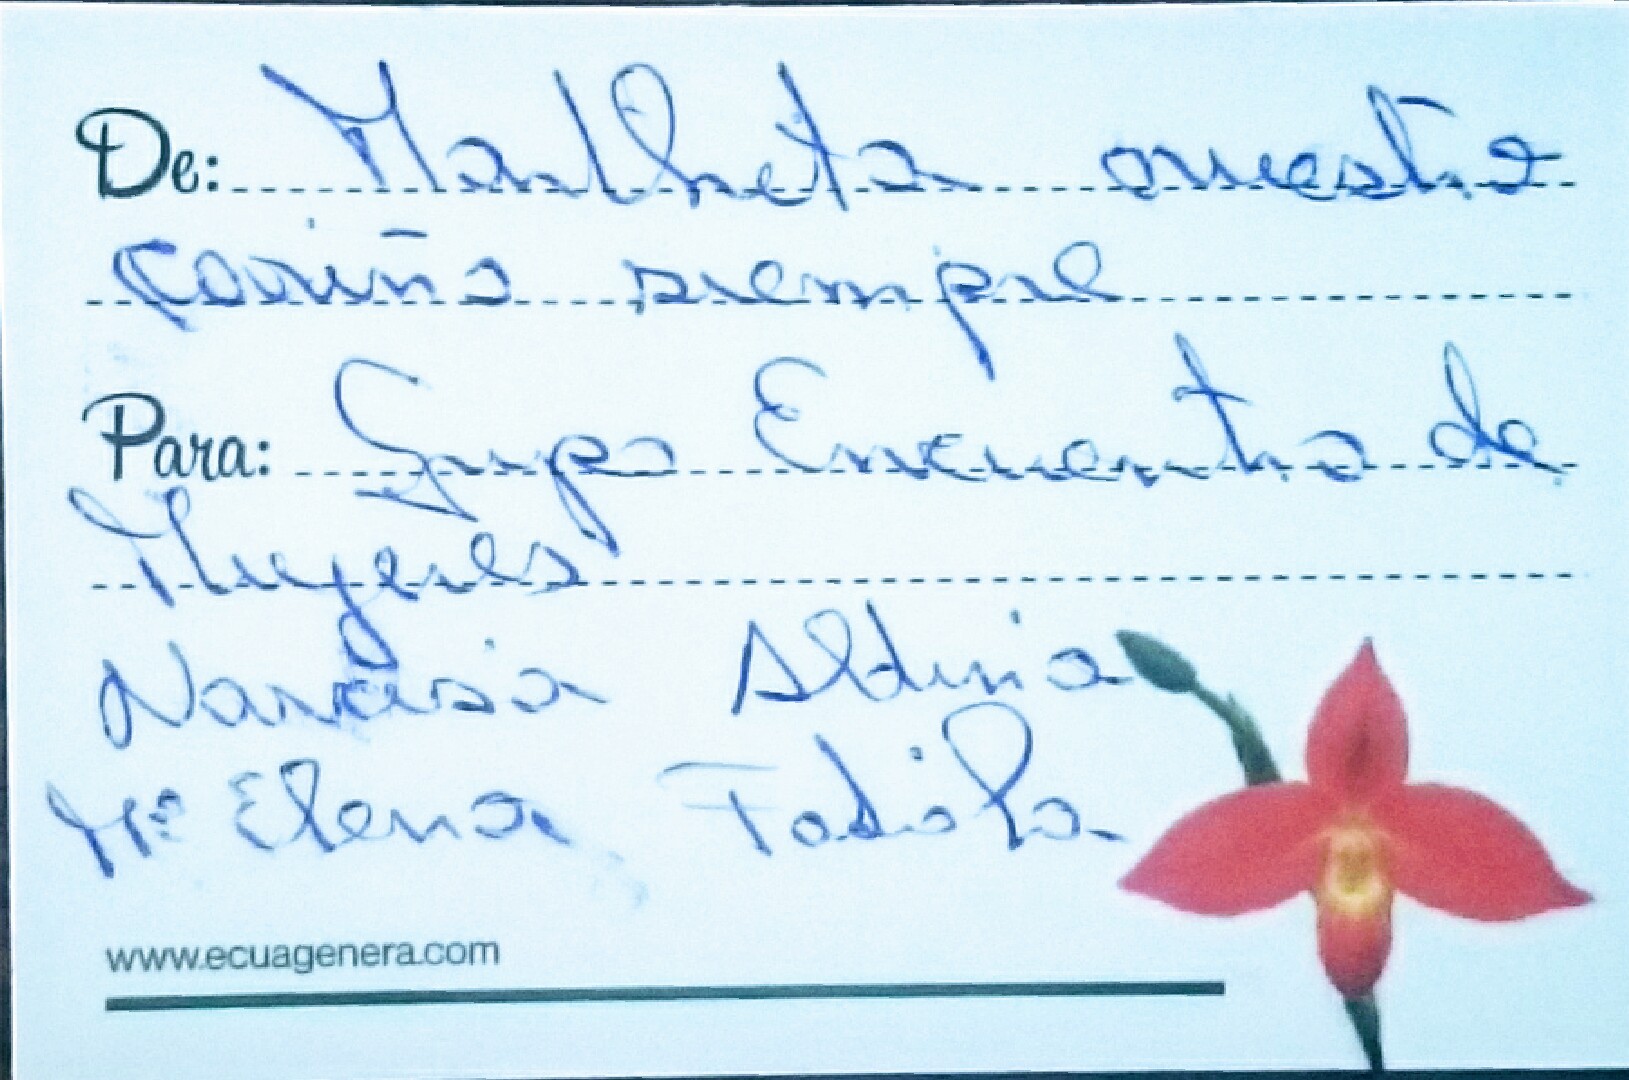 De: Marlheta nuestro
cariño siempre
Para: Grupo Encuentro de
Mugeres
Narcisa Aldina
Mª Elena Fabiola
www.ecuagenera.com